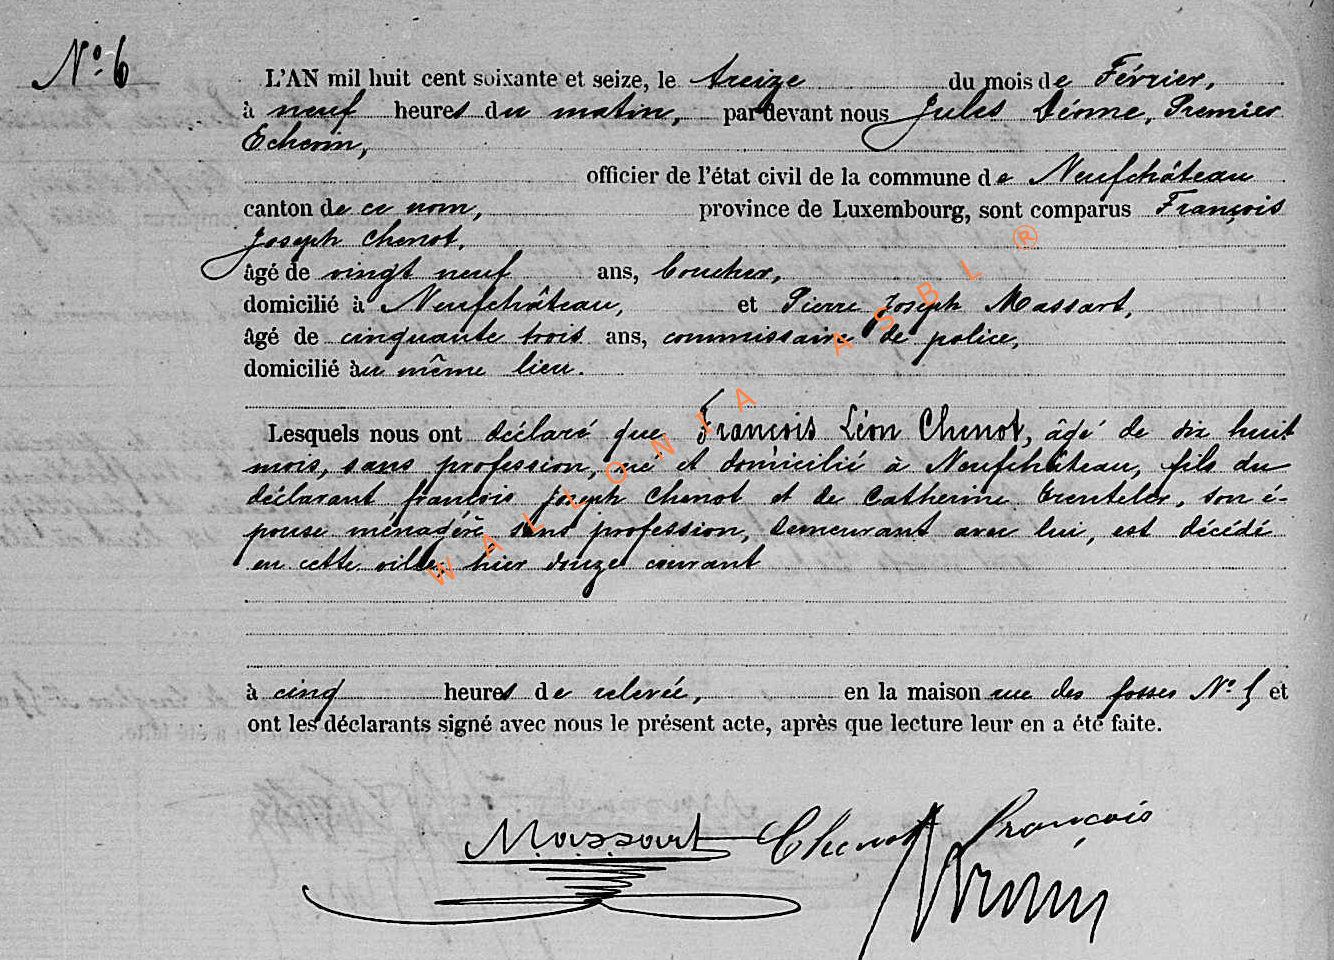 N° 6
L'AN mil huit cent soixante et seize, le treize du mois de Février,
à neuf heures du matin, par devant nous Jules Déome, Premier
Echevin,
officier de l'état civil de la commune de Neufchâteau
canton de ce nom, province de Luxembourg, sont comparus François
Joseph Chenot,
âgé de vingt neuf ans, boucher,
domicilié à Neufchâteau, et Pierre Joseph Massart,
âgé de cinquante trois ans, commissaire de police,
domicilié au même lieu.
Lesquels nous ont déclaré que François Léon Chenot, âgé de dix huit
mois, sans profession, né et domicilié à Neufchâteau, fils du
déclarant françois Joseph Chenot et de Catherine Trenteler, son é-
pouse ménagère sans profession, demeurant avec lui, est décédé
en cette ville, hier douze courant
à cinq heures de relevée, en la maison rue des fosses N° 5 et
ont les déclarants signé avec nous le présent acte, après que lecture leur en a été faite.
Massart Chenot François
WALLONIA ASBL ®